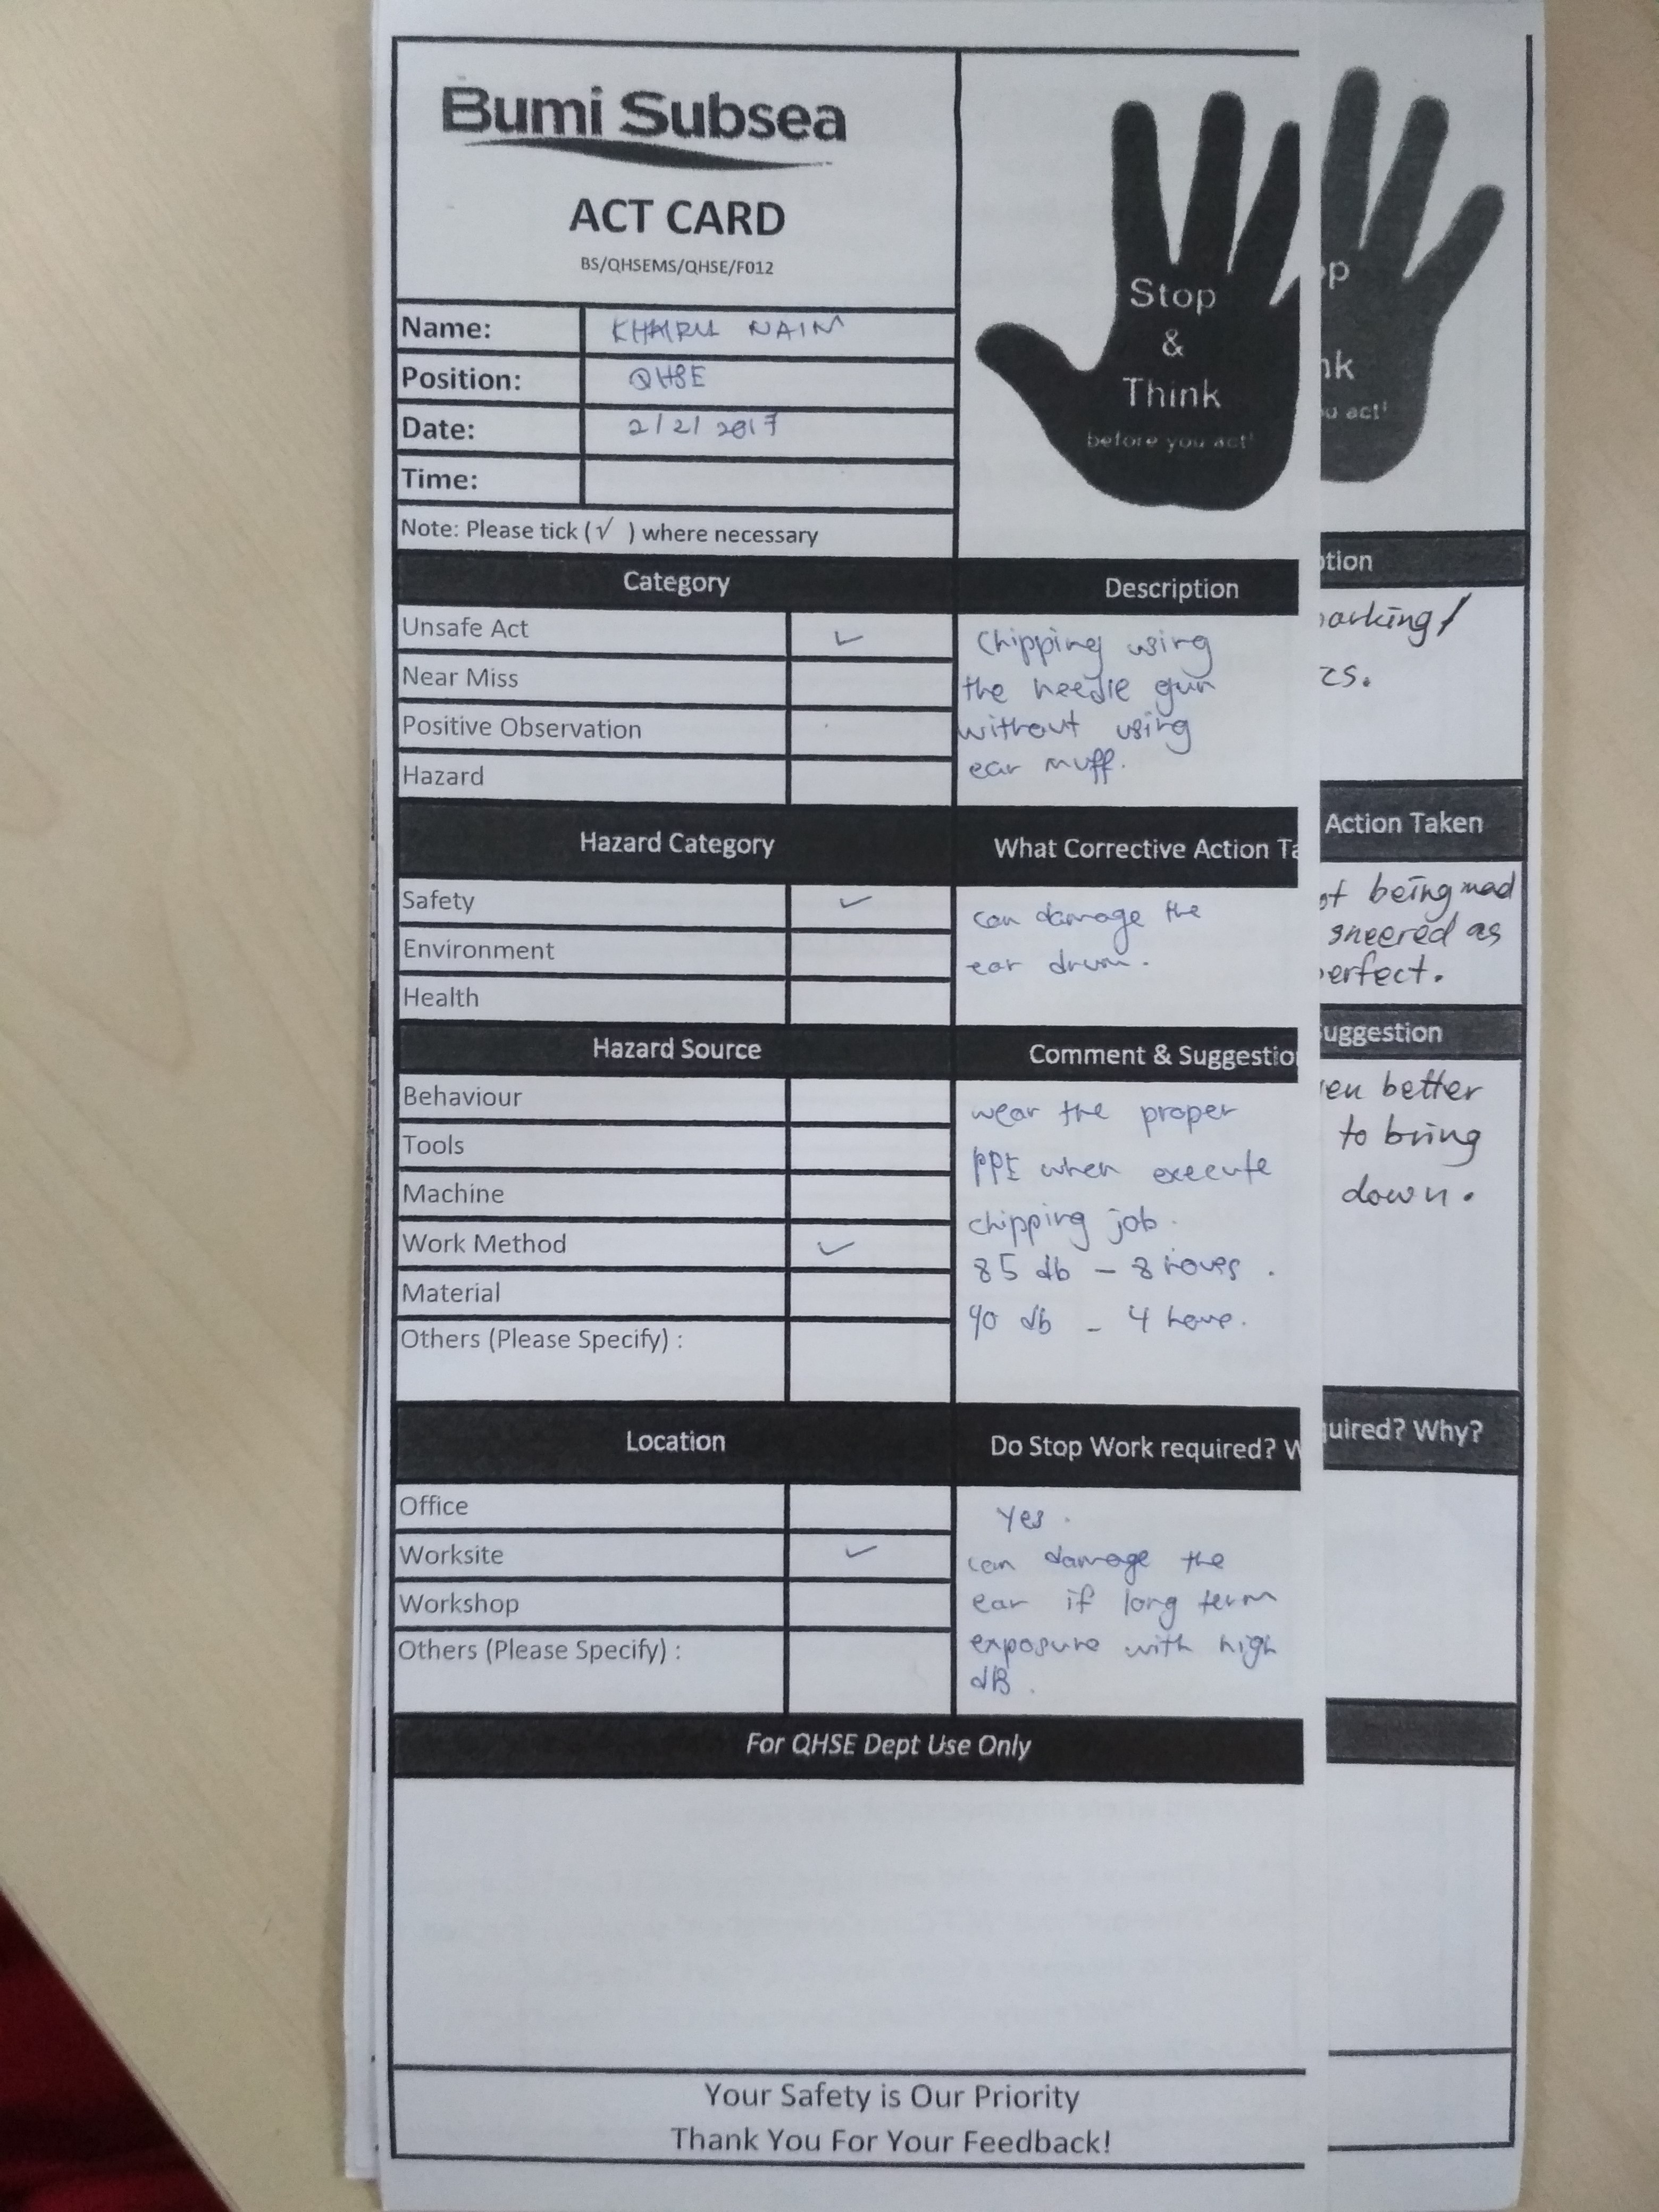 Bumi Subsea
ACT CARD
BS/QHSEMS/QHSE/F012
Name: KHAIRU NAIM
Position: QHSE
Date: 2/2/2017
Time:
Note: Please tick (√ ) where necessary
Stop
&
Think
before you act!
Category
Unsafe Act ✓
Near Miss
Positive Observation
Hazard
Description
Chipping using
the needle gun
without using
ear muff.
Hazard Category
Safety ✓
Environment
Health
What Corrective Action Ta
can damage the
ear drum.
Hazard Source
Behaviour
Tools
Machine
Work Method ✓
Material
Others (Please Specify) :
Comment & Suggestio
wear the proper
PPE when execute
chipping job.
85 db – 8
90 db – 4
Location
Office
Worksite ✓
Workshop
Others (Please Specify) :
Do Stop Work required? W
Yes.
can damage the
ear if long term
exposure with high
dB.
For QHSE Dept Use Only
Your Safety is Our Priority
Thank You For Your Feedback!
op
nk
u act!
tion
parking/
cs.
Action Taken
of being mad
sneered as
perfect.
uggestion
en better
to bring
down.
quired? Why?